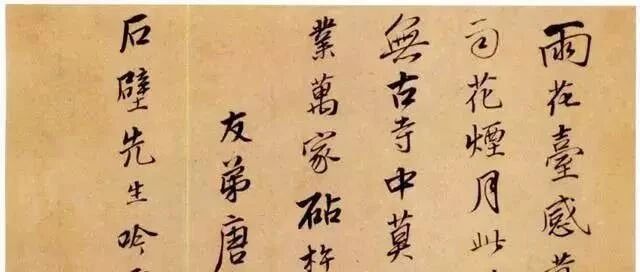 雨花臺感
司花煙月此
無古寺中莫
業萬家砧杵
友弟唐
石壁先生吟